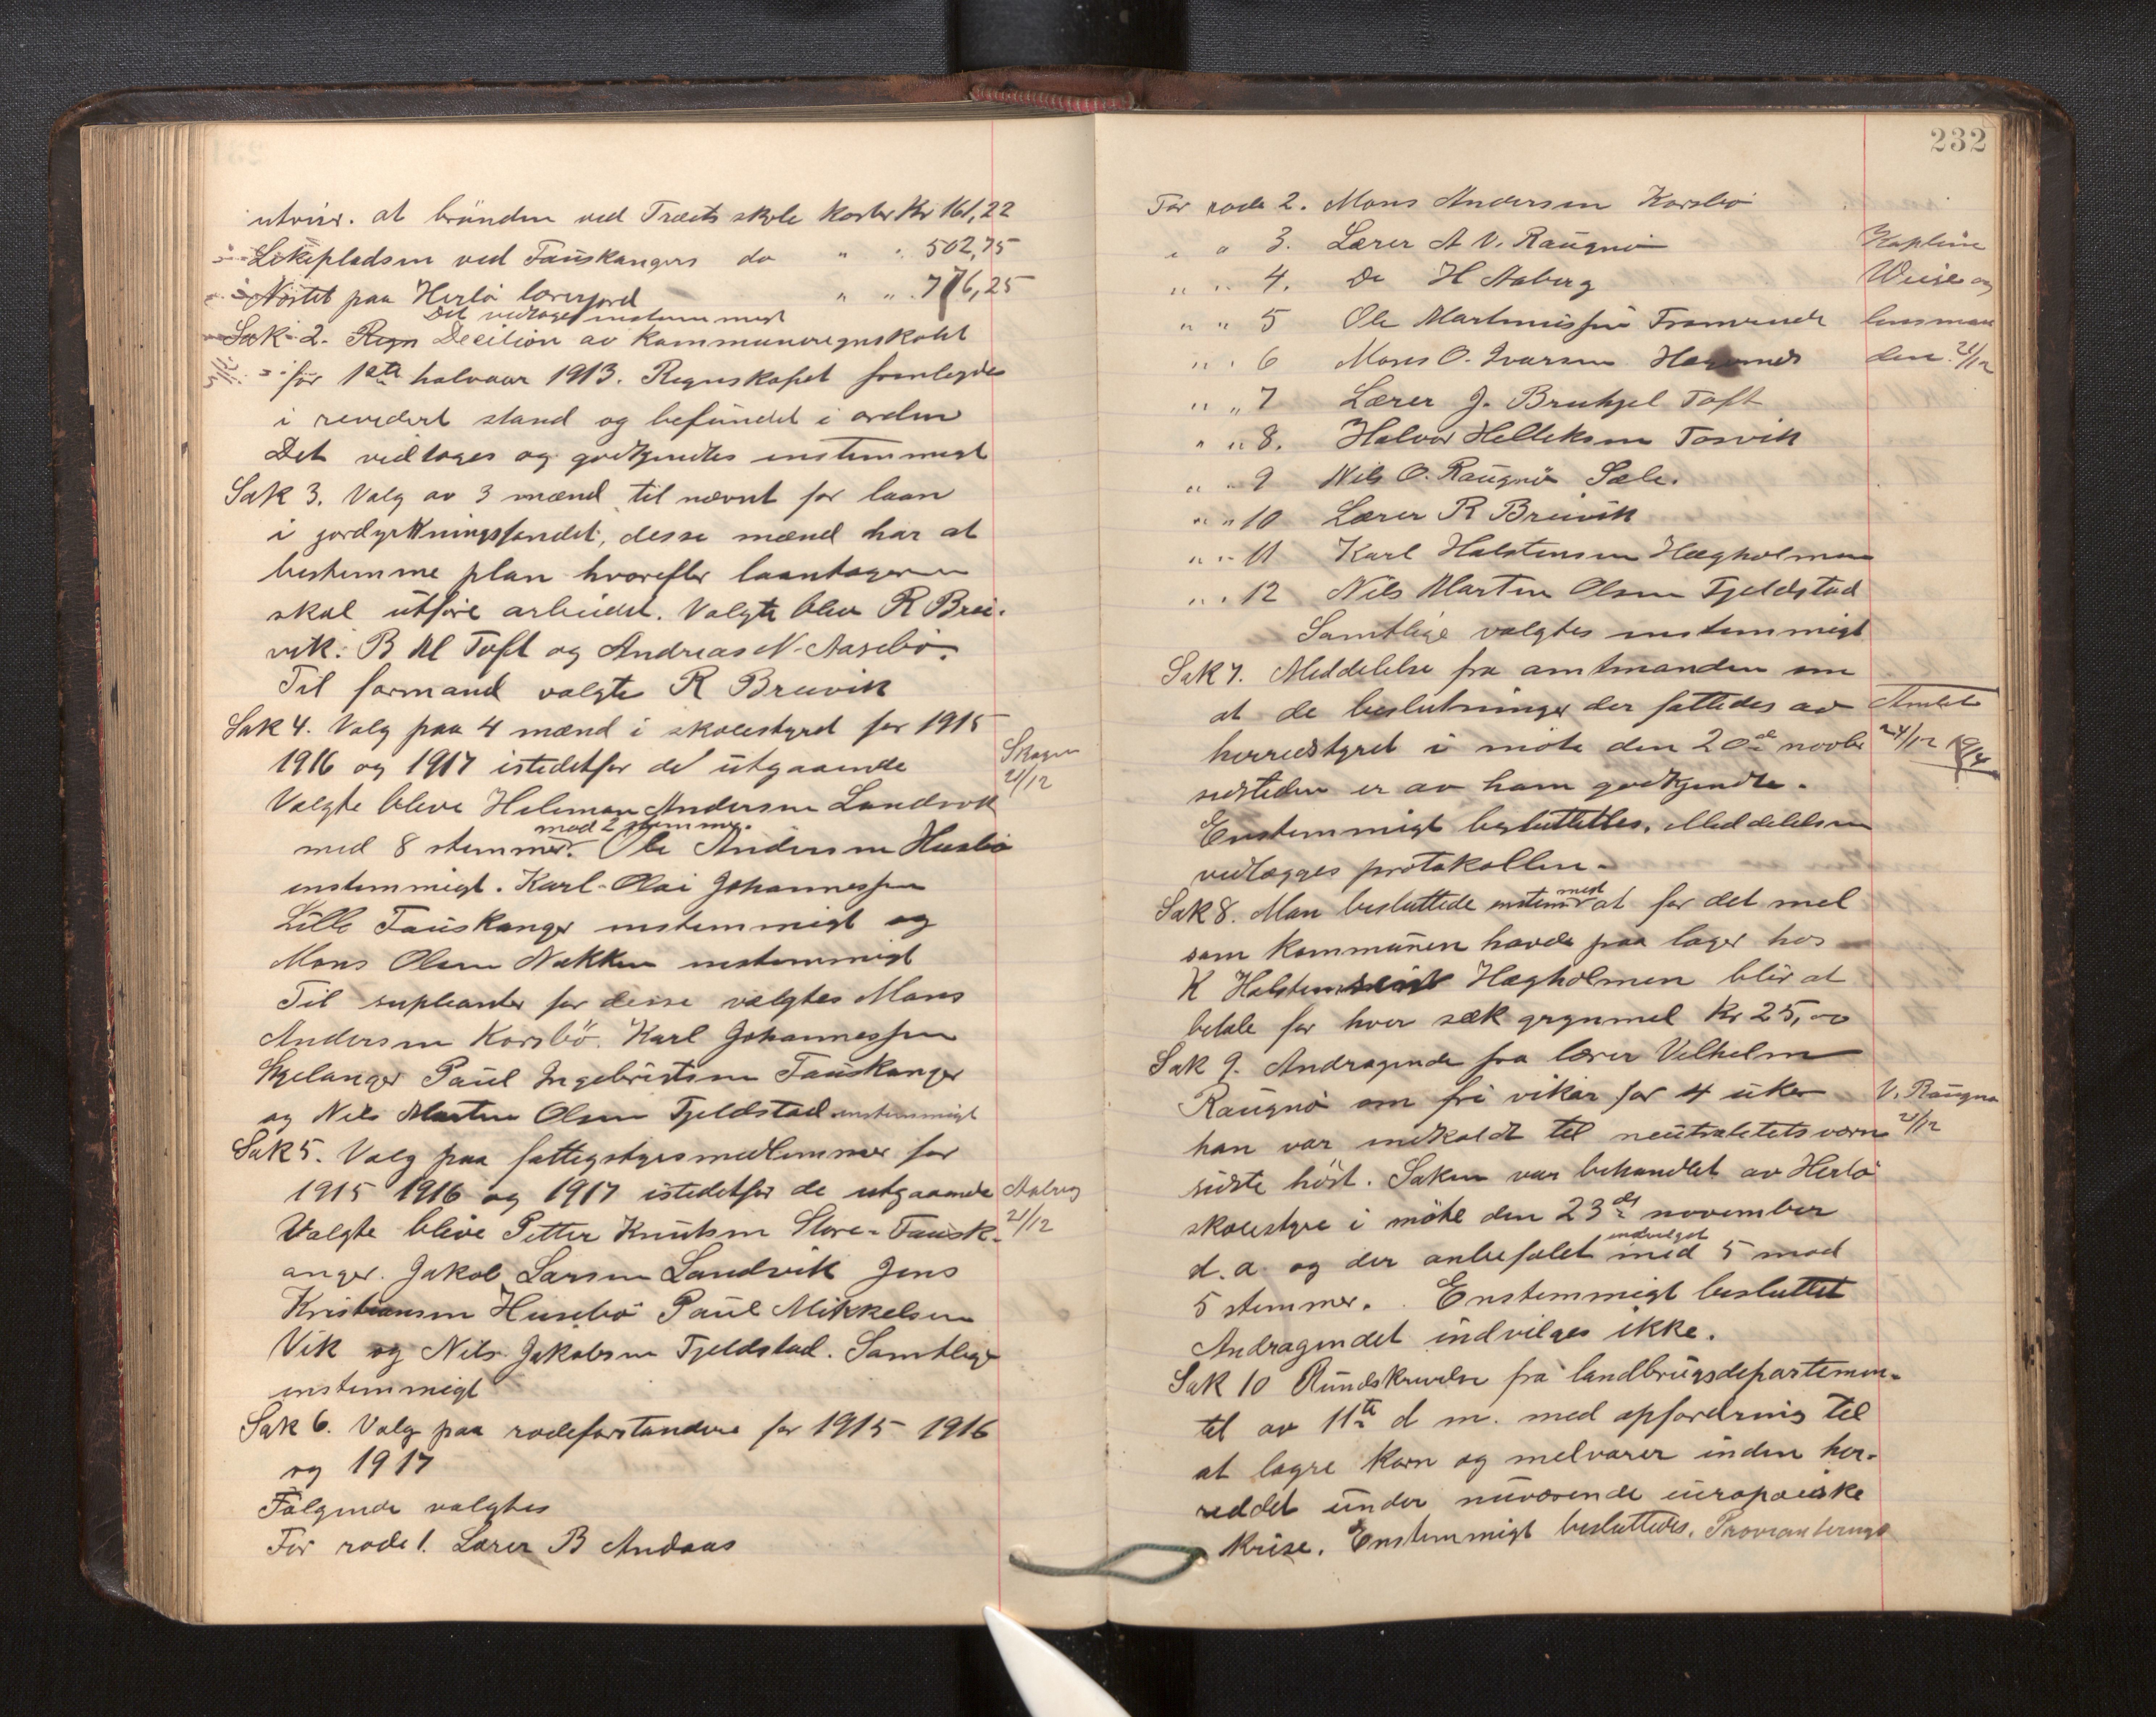 utviser. at brönden ved Træets skole koster Kr 161,22
Lekepladsen ved Fauskangers do " " 502,75
Nöstet paa Herlö lærerjord " " 776,25
Det vedtoges enstemmigt
Sak 2. Regn Decition av kommuneregnskabet
for 1ste halvaar 1913. Regnskapet fremlagdes
i revidert stand og befundet i orden
Det vedtoges og godkjendtes enstemmigt
Sak 3. Valg av 3 mænd til nævnt for laan
i jordyrkningsfondet, desse mænd har at
bestemme plan hvorefter laantageren
skal utföre arbeidet. Valgte blev R Brei-
vik. B M Toft og Andreas N. Aasebö.
Til formand valgte R Breivik
Sak 4. Valg paa 4 mænd i skolestyret for 1915
1916 og 1917 istedetfor de utgaaende
Skogen
21/12
Valgte bleve Helman Andersen Landsvik
mod 2 stemmer.
med 8 stemmer. Ole Andersen Husebö
enstemmigt. Karl Olai Johannessen
Lille Fauskanger enstemmigt og
Mons Olsen Nakken enstemmigt
Til supleanter for desse valgtes Mons
Andersen Korsbö. Karl Johannessen
Skjelanger Paul Ingebrigtsen Fauskanger
og Nils Martin Olsen Fjeldstad enstemmigt
Sak 5. Valg paa fattigstyresmedlemmer for
1915 1916 og 1917 istedetfor de utgaaende
Aaberg
21/12
Valgte bleve Petter Knutsen Store-Fausk-
anger. Jakob Larsen Landsvik Jens
Kristiansen Husebö Paul Mikkelsen
Vik og Nils Jakobsen Fjeldstad. Samtlige
enstemmigt
Sak 6. Valg paa rodeforstandere for 1915 1916
og 1917
Fölgende valgtes
For rode 1. Lærer B Andaas
232
For rode 2. Mons Andersen Korsbö
" " 3. Lærer A V. Raugnö
" " 4. Do H Aaberg
" " 5 Ole Martinussen Fromreide
" " 6 Mons O. Ivarsen Hagenes
" " 7 Lærer J. Brukjel Toft
" " 8. Halvor Helleksen Tosvik
" " 9 Nils O. Raugnö Sæle.
" " 10 Lærer R Breivik
" " 11 Karl Halstensen Hægholmen
" " 12 Nils Martin Olsen Fjeldstad
Kaptein
Weise og
lensman
den 21/12
Samtlige valgtes enstemmigt
Sak 7. Meddelelse fra amtmanden om
at de beslutninger der fattedes av
herredstyret i möte den 20de novbr
Amtet
24/12
sidstleden er av ham godkjendte.
Enstemmigt besluttettes. Meddelelsen
vedlægges protokollen.
Sak 8. Man besluttede enstemmigt at for det mel
som kommunen havde paa lager hos
K Halstensen Hægholmen blir at
betale for hver sæk grynmel Kr 25,00
Sak 9. Andragende fra lærer Vilhelm
Raugnö om fri vikar for 4 uker
V. Raugnö
21/12
han var indkaldt til neutralitetsværn
sidste höst. Saken var behandlet av Herlö
skolestyre i möte den 23de november
indvilget
d. a. og der anbefalet med 5 mod
5 stemmer. Enstemmigt besluttet
Andragendet indvilges ikke.
Sak 10 Rundskrivelse fra landbrugsdepartemen-
tet av 11te d m. med opfordring til
at lagre korn og melvarer inden her-
reddet under nuværende europæiske
krise. Enstemmigt besluttedes. Provianterings